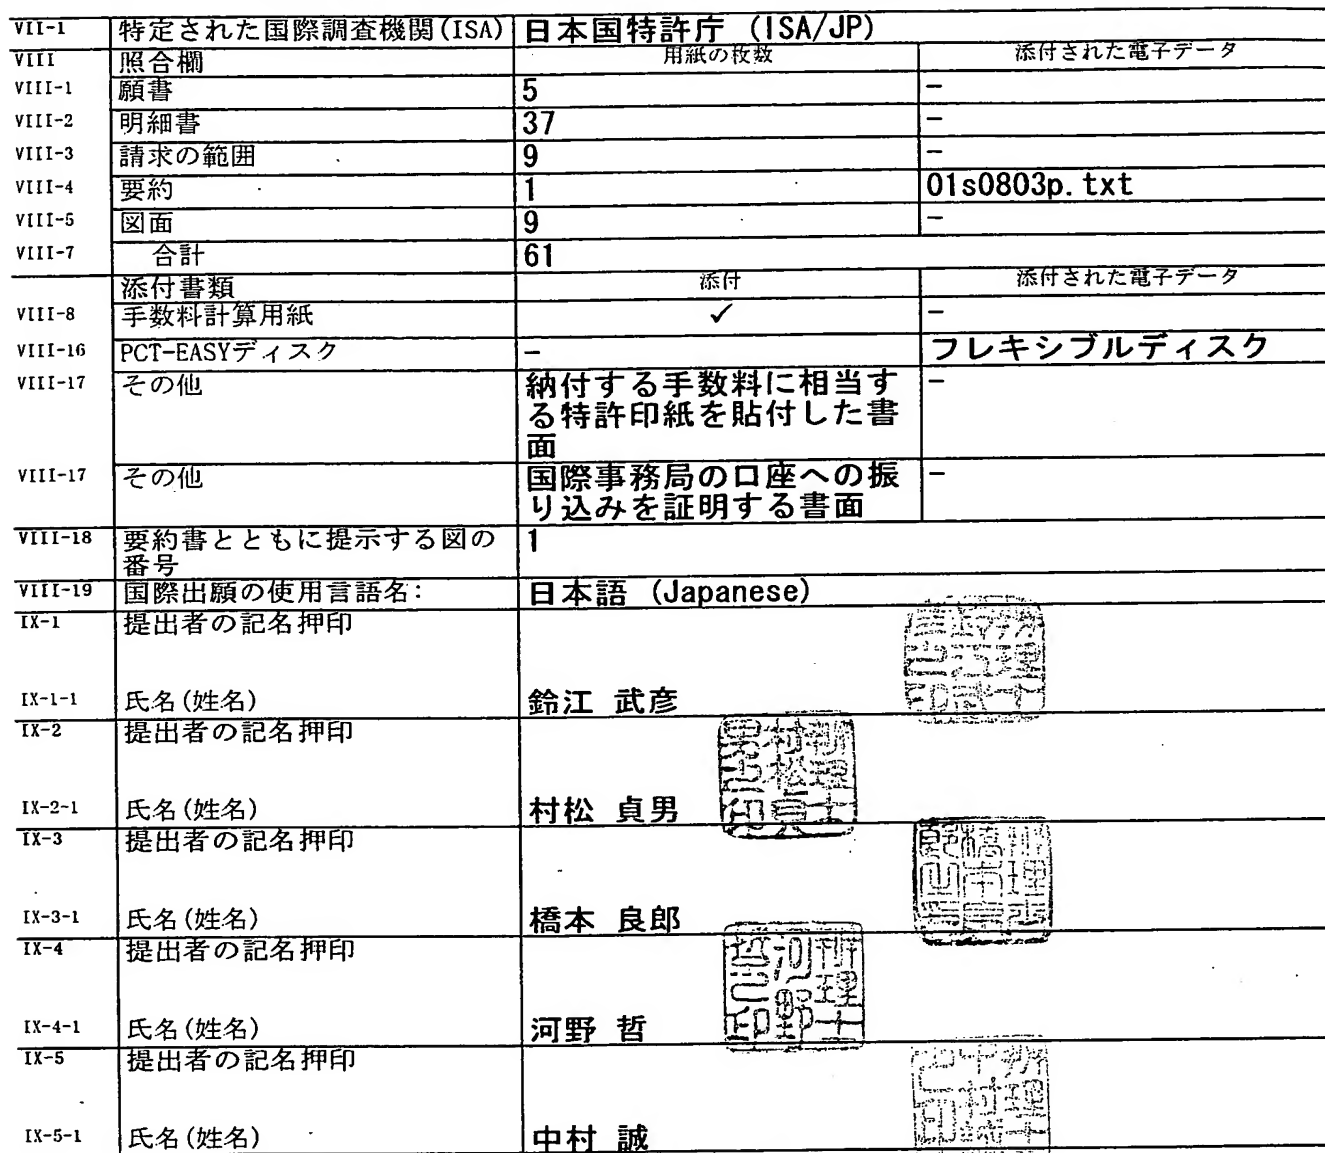 VII-1 特定された国際調査機関(ISA) 日本国特許庁 (ISA/JP)
VIII 照合欄 用紙の枚数 添付された電子データ
VIII-1 願書 5 -
VIII-2 明細書 37 -
VIII-3 請求の範囲 9 -
VIII-4 要約 1 01s0803p.txt
VIII-5 図面 9 -
VIII-7 合計 61
添付書類 添付 添付された電子データ
VIII-8 手数料計算用紙 ✓ -
VIII-16 PCT-EASYディスク - フレキシブルディスク
VIII-17 その他 納付する手数料に相当す -
る特許印紙を貼付した書
面
VIII-17 その他 国際事務局の口座への振 -
り込みを証明する書面
VIII-18 要約書とともに提示する図の 1
番号
VIII-19 国際出願の使用言語名: 日本語 (Japanese)
IX-1 提出者の記名押印
IX-1-1 氏名(姓名) 鈴江 武彦
IX-2 提出者の記名押印
IX-2-1 氏名(姓名) 村松 貞男
IX-3 提出者の記名押印
IX-3-1 氏名(姓名) 橋本 良郎
IX-4 提出者の記名押印
IX-4-1 氏名(姓名) 河野 哲
IX-5 提出者の記名押印
IX-5-1 氏名(姓名) 中村 誠